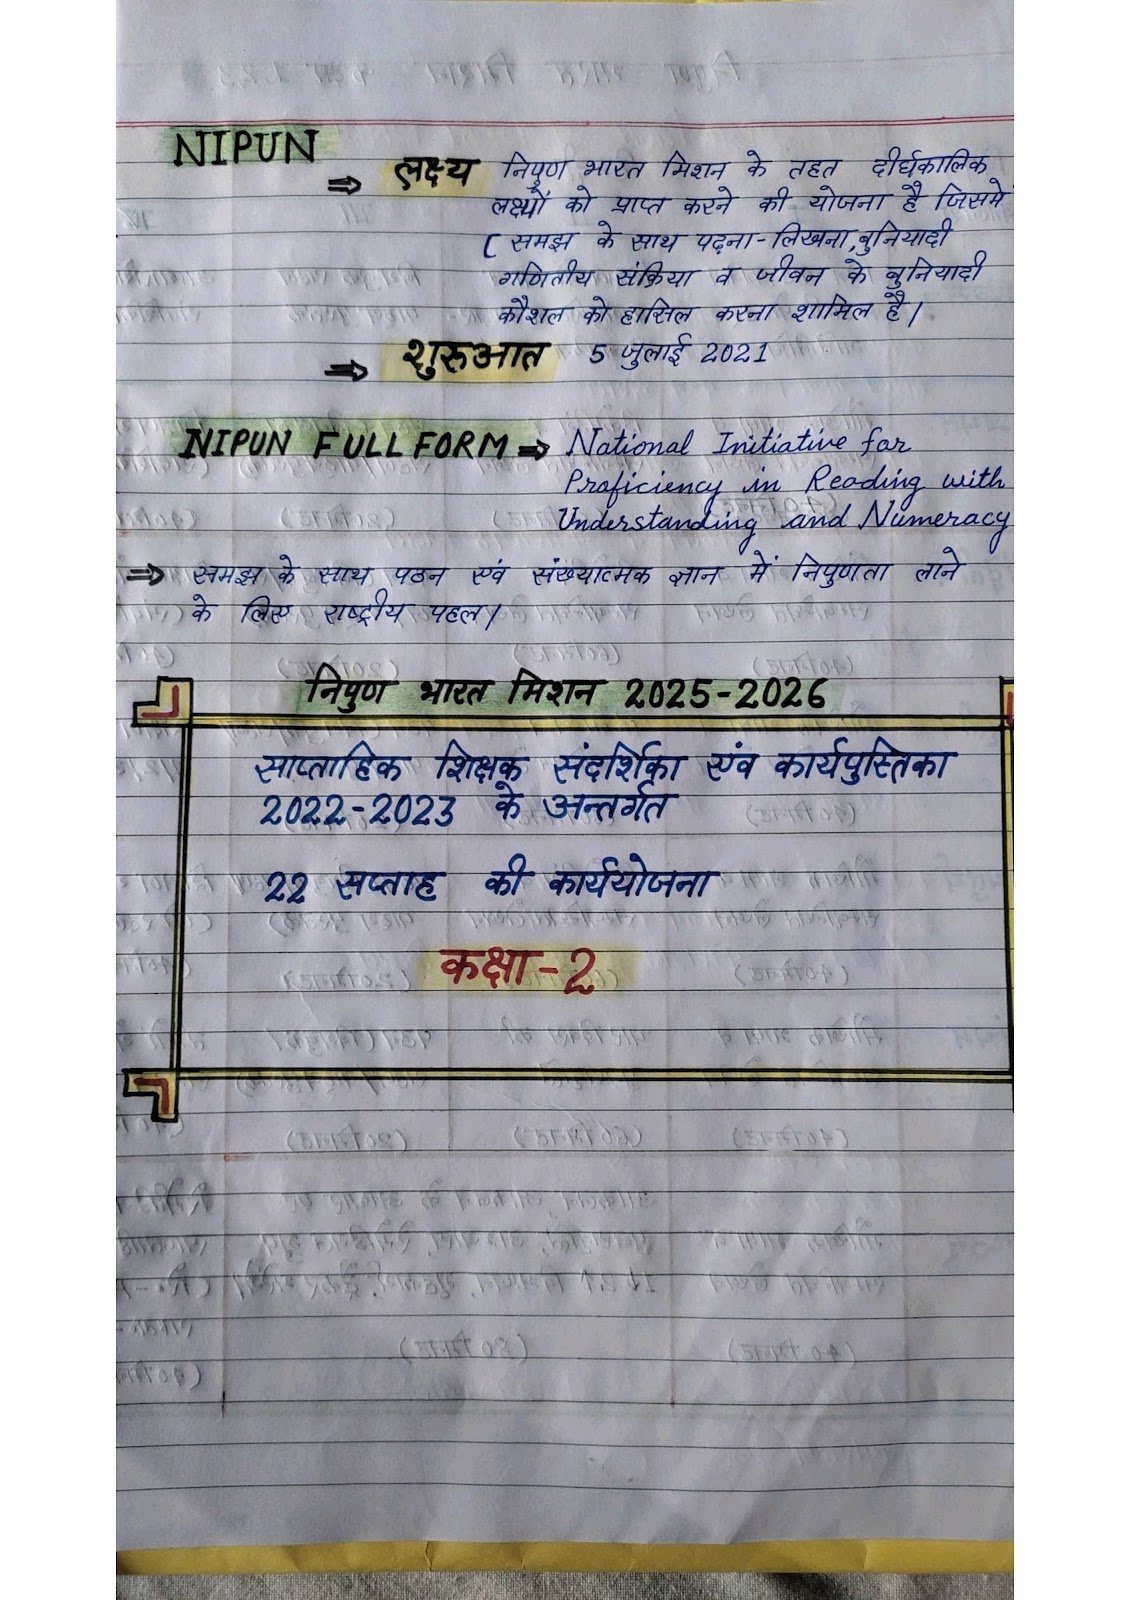 NIPUN
⇒ लक्ष्य निपुण भारत मिशन के तहत दीर्घकालिक
लक्ष्यों को प्राप्त करने की योजना है जिसमें
( समझ के साथ पढ़ना-लिखना, बुनियादी
गणितीय संक्रिया व जीवन के बुनियादी
कौशल को हासिल करना शामिल है।
⇒ शुरुआत 5 जुलाई 2021
NIPUN FULL FORM ⇒ National Initiative for
Proficiency in Reading with
Understanding and Numeracy
⇒ समझ के साथ पठन एवं संख्यात्मक ज्ञान में निपुणता लाने
के लिए राष्ट्रीय पहल।
निपुण भारत मिशन 2025-2026
साप्ताहिक शिक्षक संदर्शिका एंव कार्यपुस्तिका
2022-2023 के अन्तर्गत
22 सप्ताह की कार्ययोजना
कक्षा-2